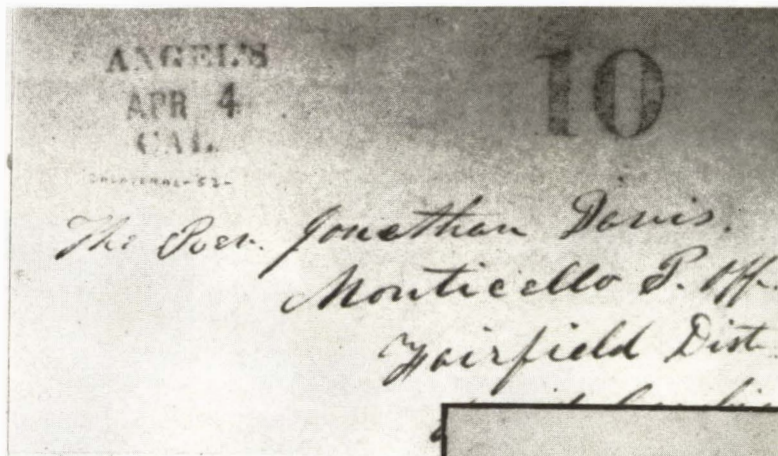 ANGEL'S
APR 4
CAL.
10
The Rev. Jonathan Davis.
Monticello P. Off.
Fairfield Dist.